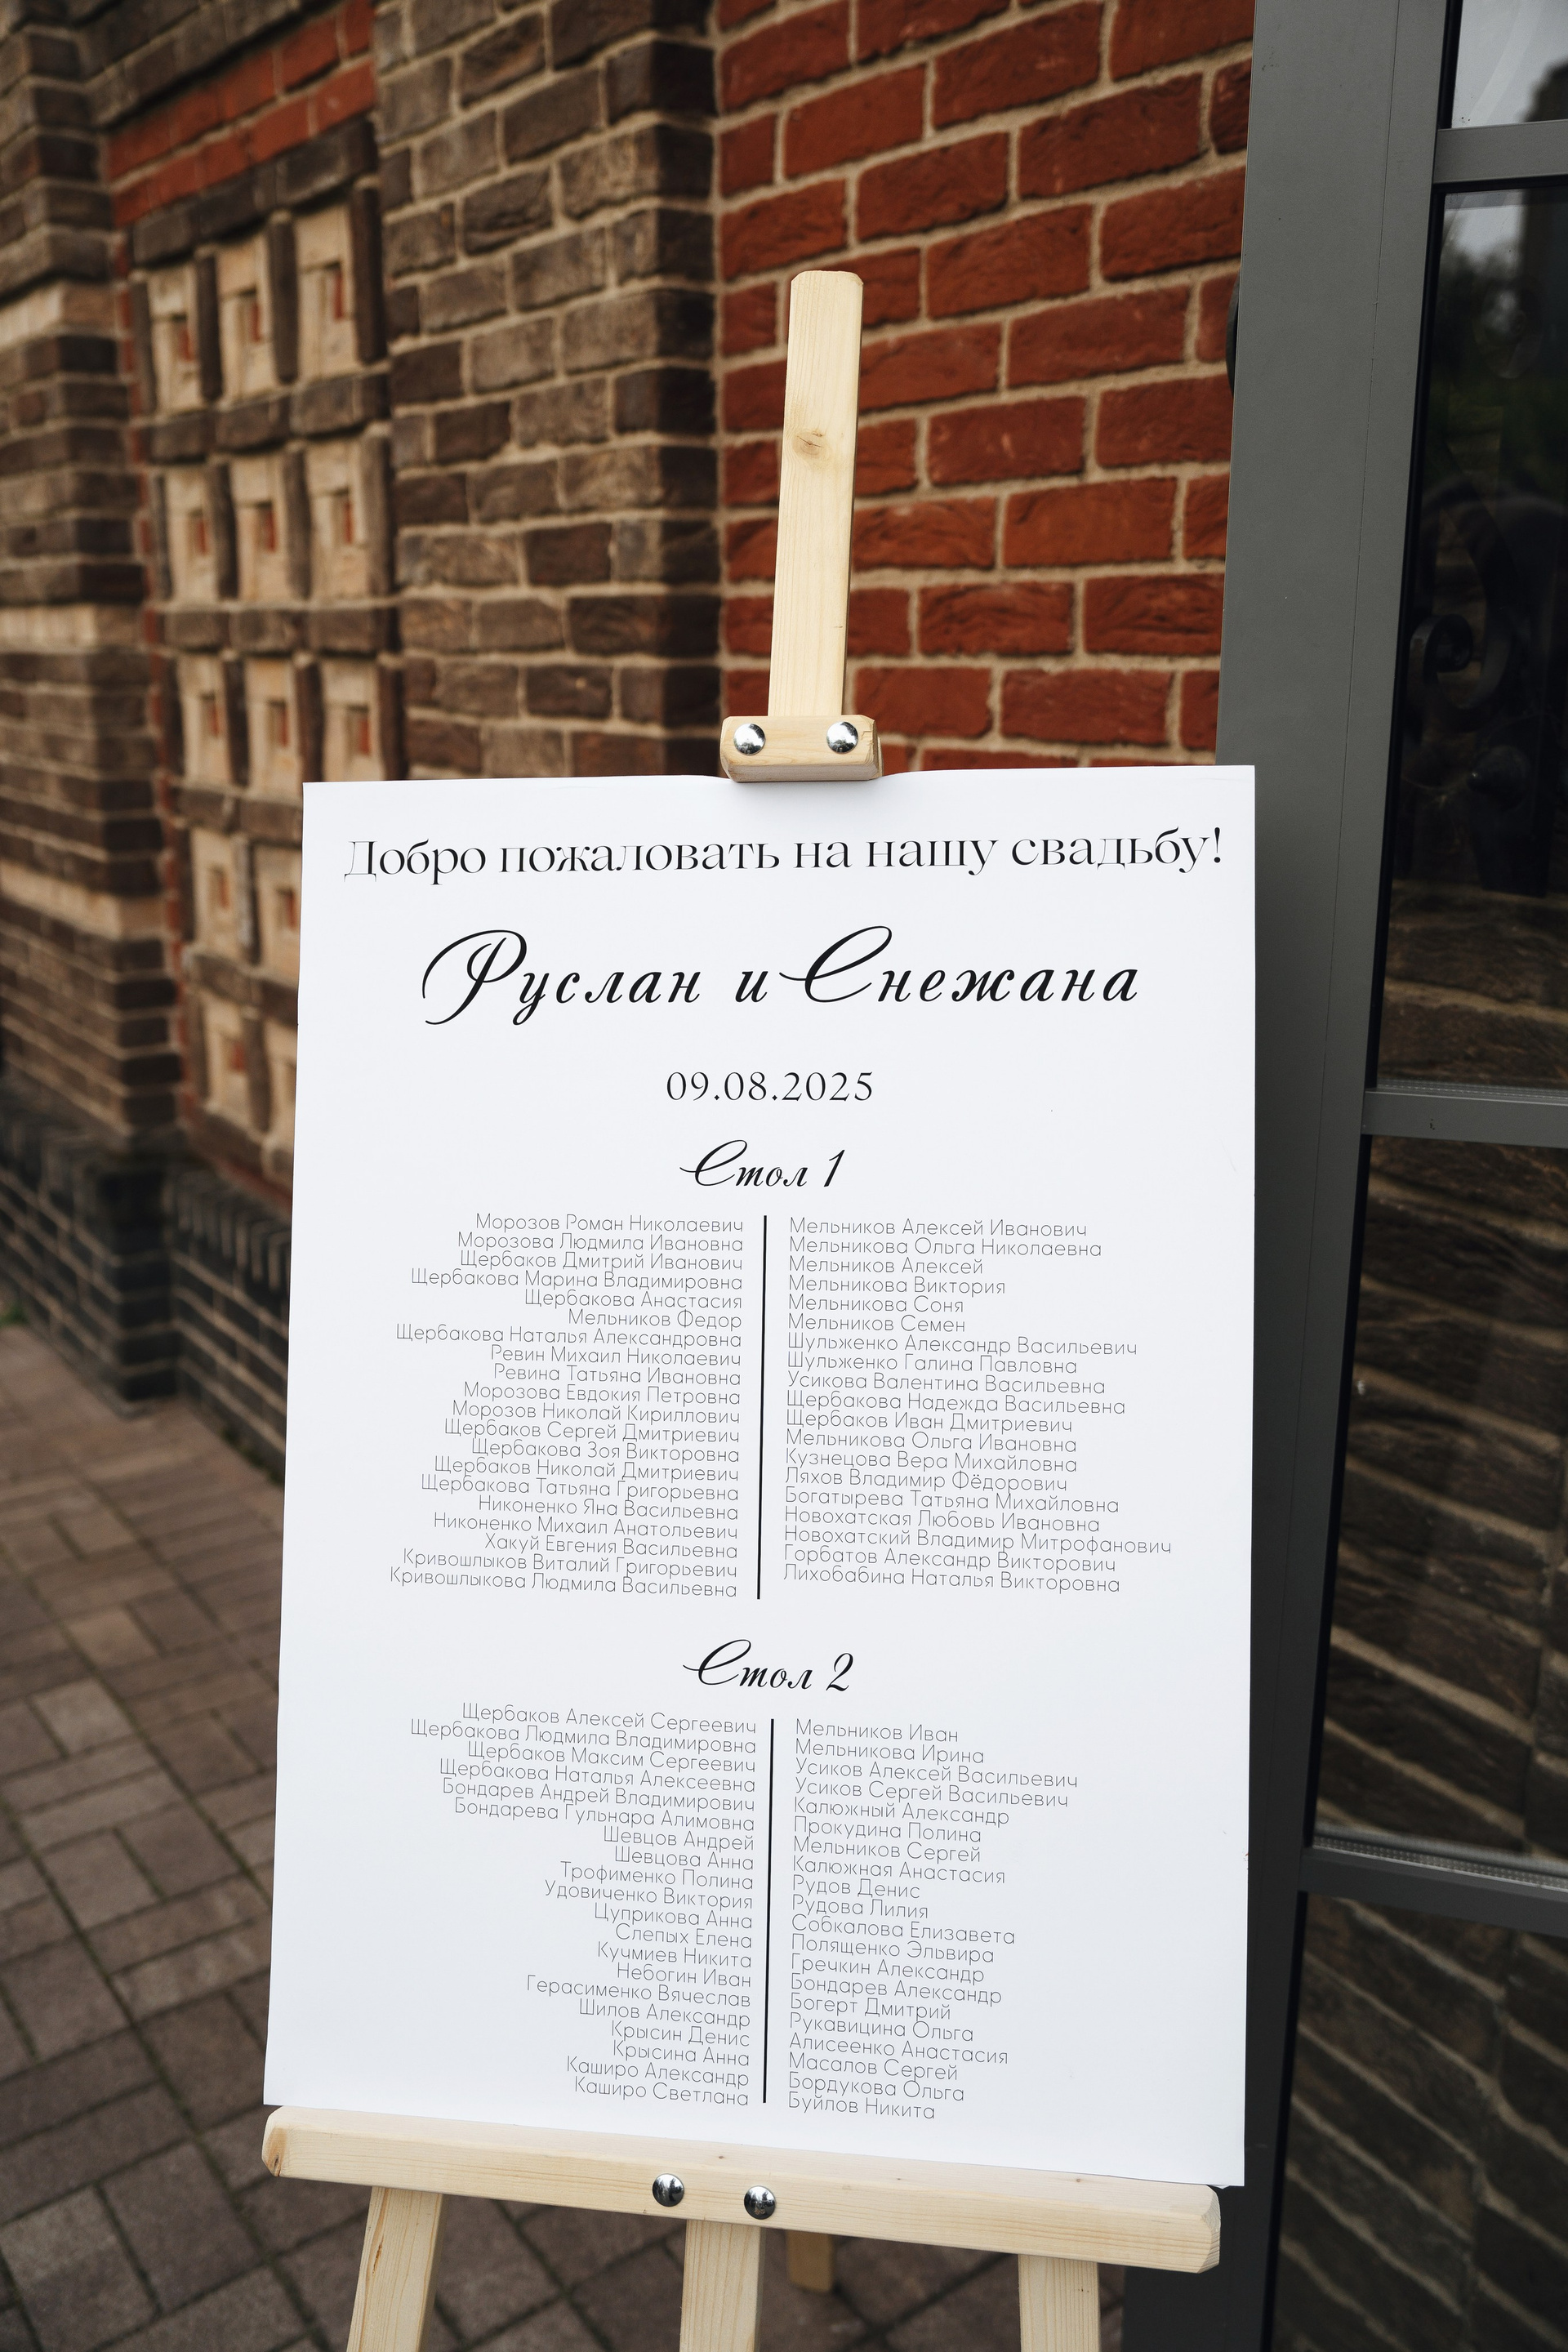 Добро пожаловать на нашу свадьбу!
Руслан и Снежана
09.08.2025
Стол 1
Морозов Роман Николаевич
Морозова Людмила Ивановна
Щербаков Дмитрий Иванович
Щербакова Марина Владимировна
Щербакова Анастасия
Мельников Федор
Щербакова Наталья Александровна
Ревин Михаил Николаевич
Ревина Татьяна Ивановна
Морозова Евдокия Петровна
Морозов Николай Кириллович
Щербаков Сергей Дмитриевич
Щербакова Зоя Викторовна
Щербаков Николай Дмитриевич
Щербакова Татьяна Григорьевна
Никоненко Яна Васильевна
Никоненко Михаил Анатольевич
Хакуй Евгения Васильевна
Кривошлыков Виталий Григорьевич
Кривошлыкова Людмила Васильевна
Мельников Алексей Иванович
Мельникова Ольга Николаевна
Мельников Алексей
Мельникова Виктория
Мельникова Соня
Мельников Семен
Шульженко Александр Васильевич
Шульженко Галина Павловна
Усикова Валентина Васильевна
Щербакова Надежда Васильевна
Щербаков Иван Дмитриевич
Мельникова Ольга Ивановна
Кузнецова Вера Михайловна
Ляхов Владимир Фёдорович
Богатырева Татьяна Михайловна
Новохатская Любовь Ивановна
Новохатский Владимир Митрофанович
Горбатов Александр Викторович
Лихобабина Наталья Викторовна
Стол 2
Щербаков Алексей Сергеевич
Щербакова Людмила Владимировна
Щербаков Максим Сергеевич
Щербакова Наталья Алексеевна
Бондарев Андрей Владимирович
Бондарева Гульнара Алимовна
Шевцов Андрей
Шевцова Анна
Трофименко Полина
Удовиченко Виктория
Цуприкова Анна
Слепых Елена
Кучмиев Никита
Небогин Иван
Герасименко Вячеслав
Шилов Александр
Крысин Денис
Крысина Анна
Каширо Александр
Каширо Светлана
Мельников Иван
Мельникова Ирина
Усиков Алексей Васильевич
Усиков Сергей Васильевич
Калюжный Александр
Прокудина Полина
Мельников Сергей
Калюжная Анастасия
Рудов Денис
Рудова Лилия
Собкалова Елизавета
Полященко Эльвира
Гречкин Александр
Бондарев Александр
Богерт Дмитрий
Рукавицина Ольга
Алисеенко Анастасия
Масалов Сергей
Бордукова Ольга
Буйлов Никита